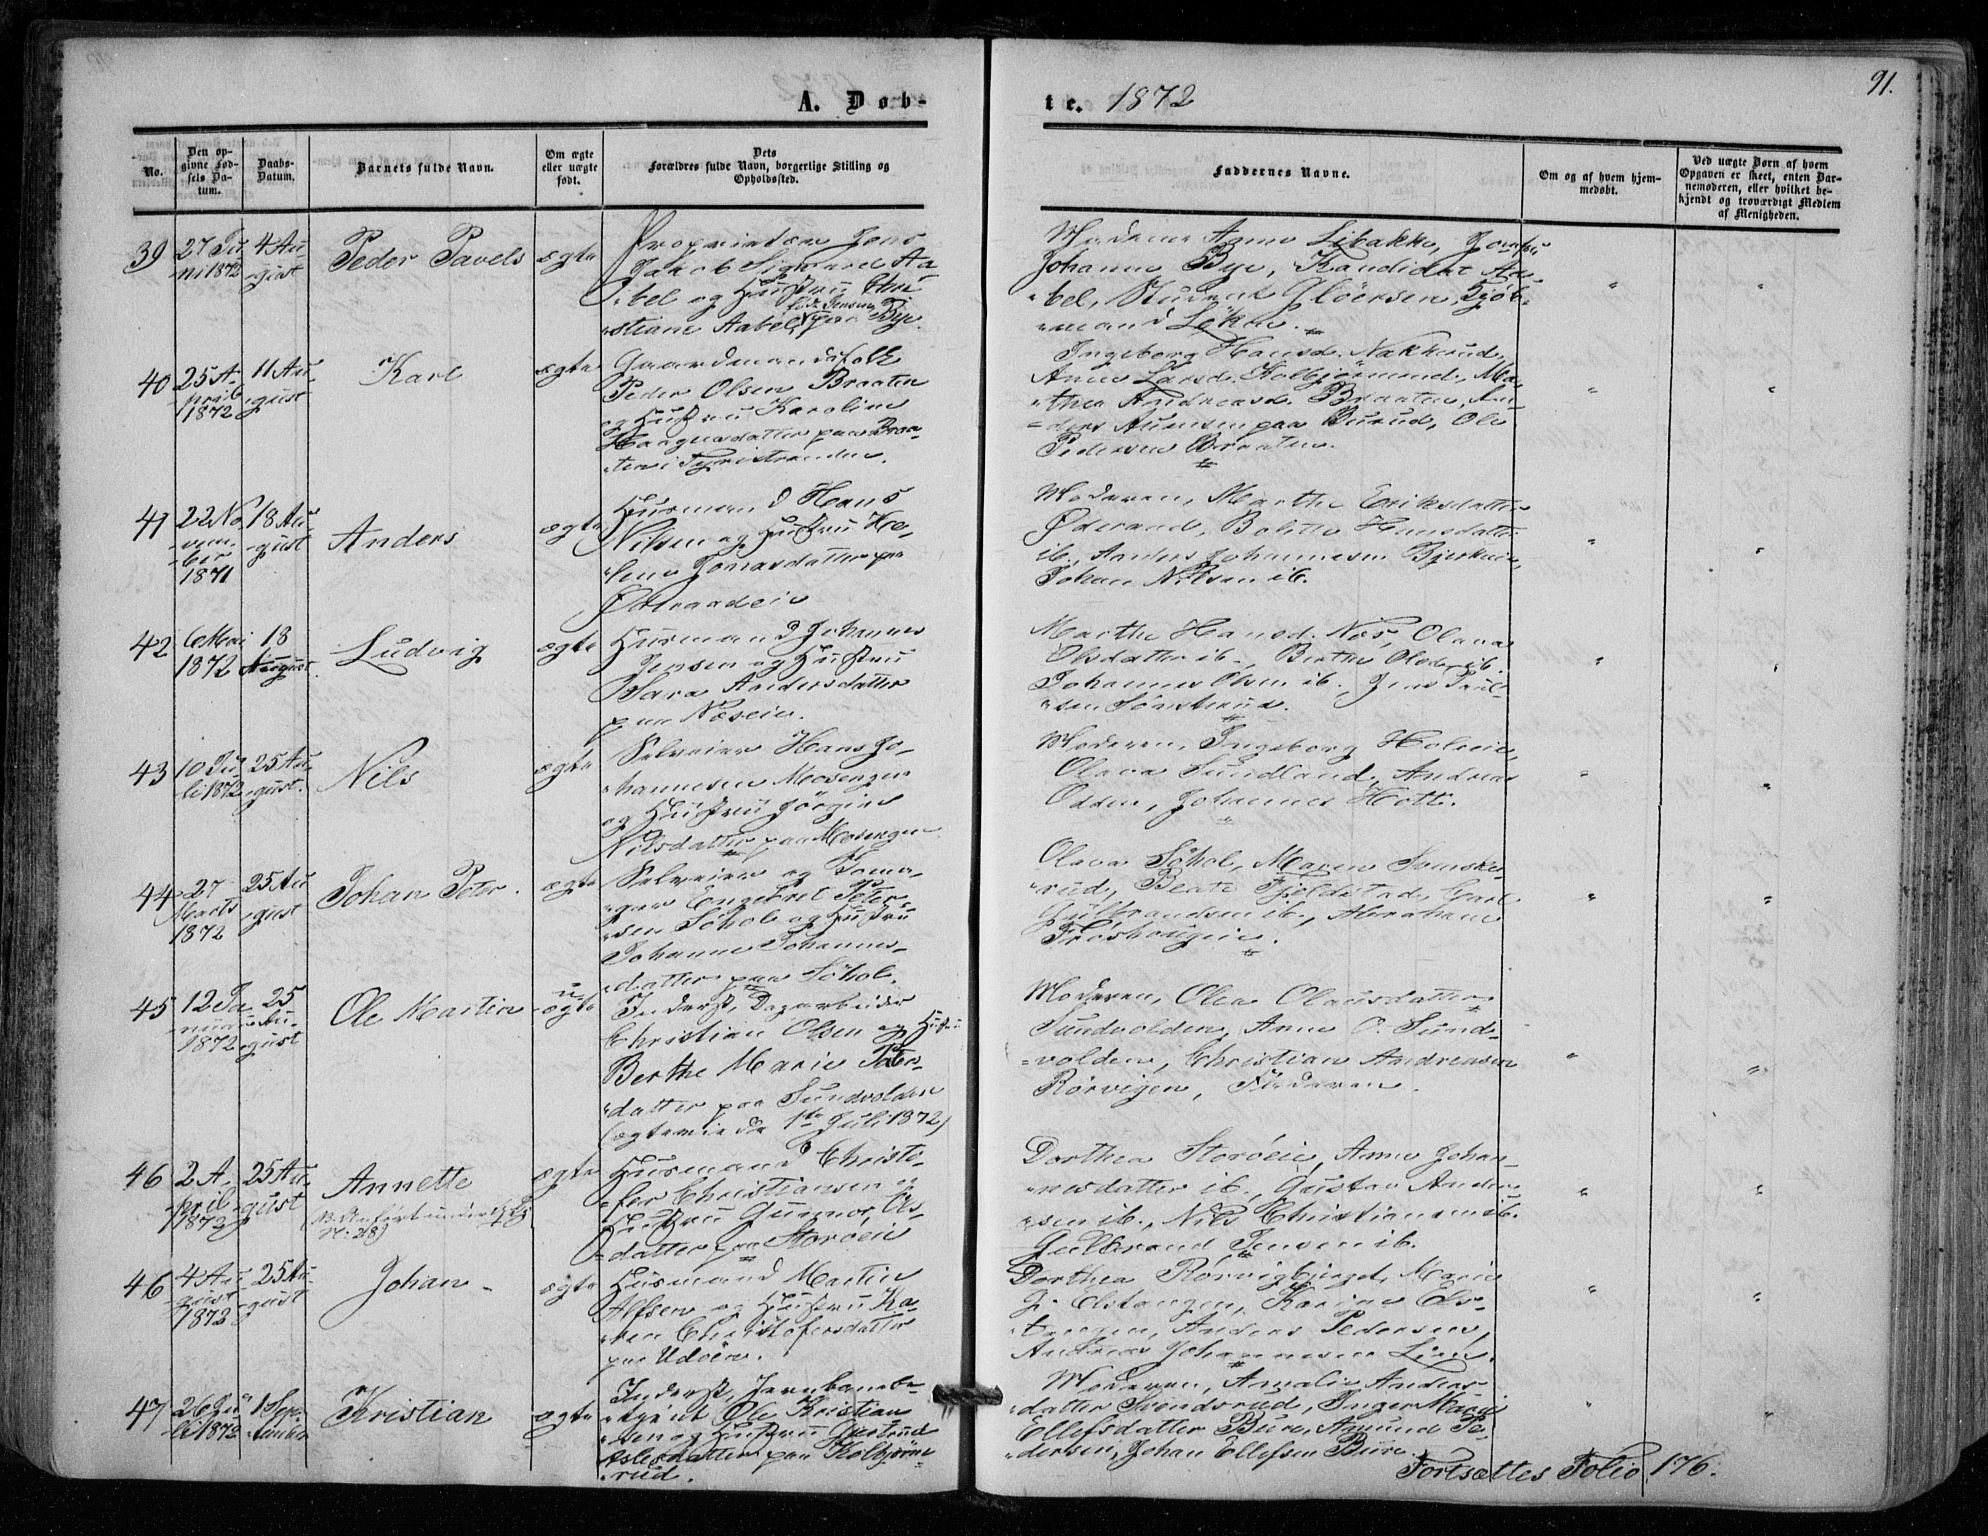 91.
A. Døb-
te. 1872
No.
Den op-
givne Fød-
sels Da-
tum.
Daabs-
Datum.
Barnets fulde Navn.
Om ægte
eller uægte
født.
Dets
Forældres fulde Navn, borgerlige Stilling og
Opholdssted.
Faddernes Navne.
Om og af hvem hjem-
medøbt.
Ved uægte Børn af hvem
Opgaven er skeet, enten Bar-
nemoderen, eller hvilket be-
kjendt og troværdigt Medlem
af Menigheden.
39
27 Ju-
ni 1872
4 Au-
gust
Peder Pavels
ægte
Proprietær Jens
Jakob Sigvard Aa-
bel og Hustru Chri-
stiane Aabel, f. Jensen paa Bye.
Moderen, Anne Libakke, Jomfru
Johanne Bye, Kandidat Aa-
bel, Student Gløersen, Kjøb-
mand Løken.
40
25 A-
pril
1872
11 Au-
gust
Karl
ægte
Gaardmandsfolk
Peder Olsen Braaten
og Hustru Karoline
Haagensdatter paa Braa-
ten i Tyristranden.
Ingeborg Hansd. Nakkerud,
Anne Larsd. Kolbjørnrud, Ma-
thea Andreasd. Braaten, An-
ders paa Burud, Ole
Pedersen Braaten.
41
22 No-
vem-
ber
1871
18 Au-
gust
Anders
ægte
Husmand Hans
Nilsen og Hustru He-
lene Jonasdatter paa
Øderaadeie
Moderen, Marthe Eriksdatter
Øderaad, Bolette Hansdatter
ib., Anders Johannesen Bjerkeeie,
Johan Nilsen ib.
42
6 Mai
1872
18
August.
Ludvig
ægte
Husmand Johannes
Jensen og Hustru
Sara Andersdatter
paa Næseie.
Marthe Hansd. Næs, Olava
Olsdatter ib., Berthe Olsd. ib.
Johannes Olsen ib., Jens Paul-
sen Sønsterud.
43
10 Ju-
li 1872
25 Au-
gust.
Nils
ægte
Selveier Hans Jo-
hannesen Mosengen
og Hustru Jørgine
Nilsdatter paa Mosengen
Moderen, Ingeborg Holeie,
Olava Sundland, Andreas
Odden, Johannes Hott.
44
27
Marts
1872
25 Au-
gust
Johan Peter.
ægte
Selveier og
Engebret Peter-
sen Søhol og Hustru
Johanne Johannes-
datter paa Søhol.
Olava Søhol, Maren Svenske-
rud, Beate Fjeldstad, Carl
Gulbrandsen ib., Abraham
Frøshaugeie.
45
12 Ja-
nuar
1872
25
Au-
gust
Ole Martin
u-
ægte
Inderst, Dagarbeider
Christian Olsen og Hustru
Berthe Marie Peders-
datter paa Sundvolden
(ægteviede 1ste Juli 1872)
Moderen, Olea Olausdatter
Sundvolden, Anne O. Sund-
volden, Christian Andreasen
Rørvigen, Faderen.
46
2 A-
pril
1872
25 Au-
gust
Annette
(B. Anført under
N. 28)
ægte
Husmand Christo-
fer Christiansen og
Hustru Gunnor Ols-
datter paa Storøeie
Dorthea Storøeie, Anne Johan-
nesdatter ib., Gustav Ander-
sen ib., Nils Christiansen ib.
Gulbrand Jensen ib.
46
4 Au-
gust
1872
25 Au-
gust
Johan
ægte
Husmand Martin
Alfsen og Hustru Ka-
ren Christofersdatter
paa Udøen.
Dorthea Rørvigbjerget, Marie
J. Elstangen, Karine Els-
tangen, Anders Pedersen,
Andreas Johannesen Lien.
47
26 Ju-
li 1872
1 Sep-
tember
Kristian
ægte
Inderst, Jernbanebe-
tjent Ole Kristian-
sen og Hustru Gjertrud
Aslesdatter paa Kolbjørn-
rud.
Moderen, Amalie Anders-
datter Svendsrud, Inger Marie
Ellefsdatter Bure, Amund Pe-
dersen, Johan Ellefsen Bure.
Fortsættes Folio 176.